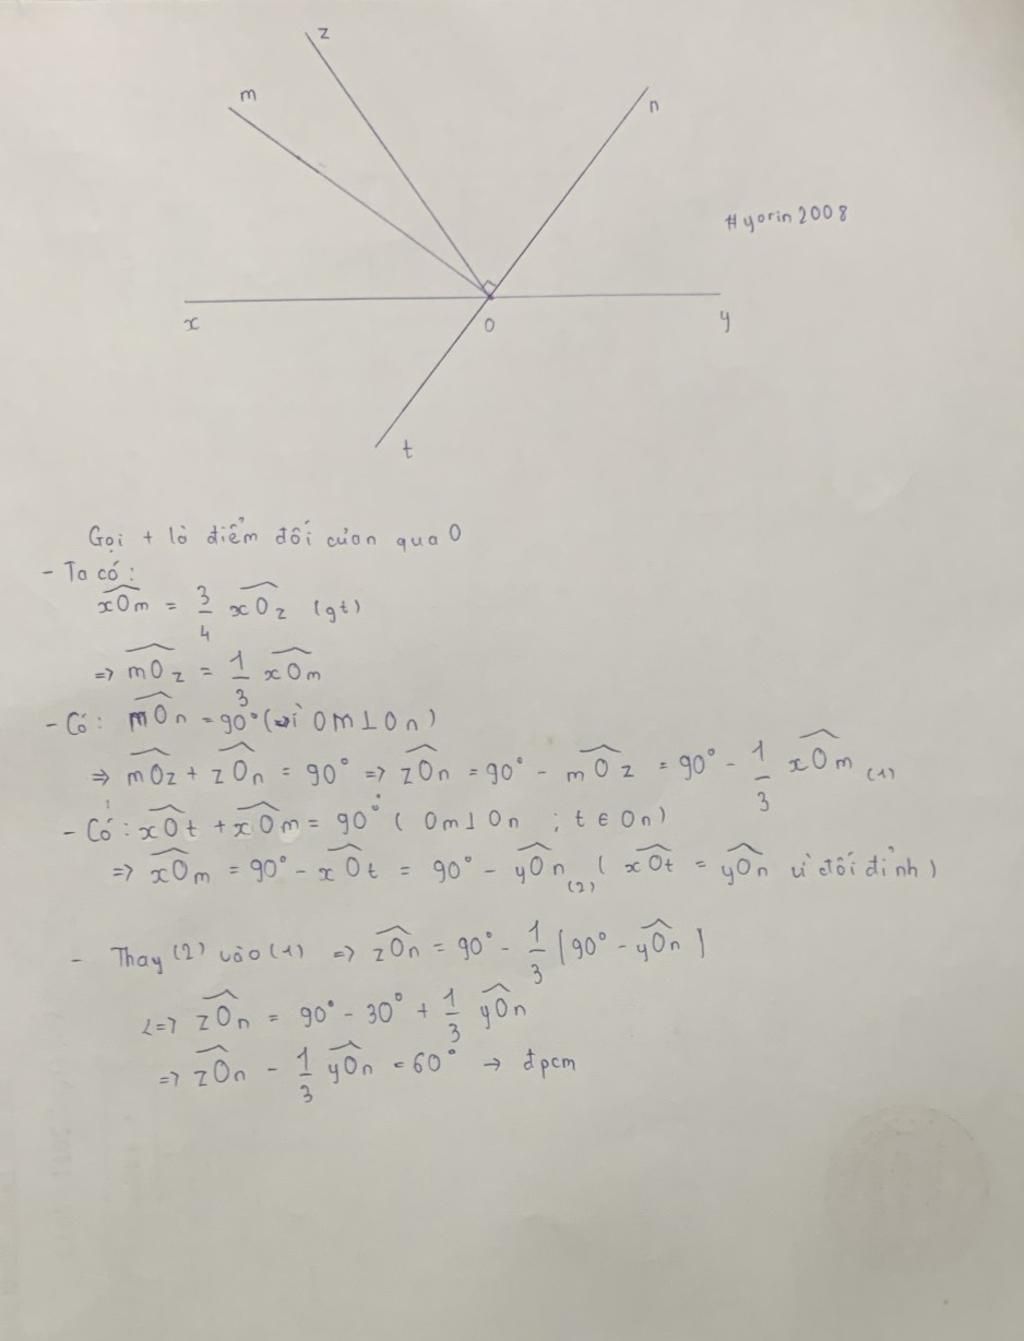 z
m
n
#yorin2008
x
O
y
t
Gọi t lò điểm đối củan qua O
- Ta có:
xOm = 3/4 xOz (gt)
=> mOz = 1/3 xOm
- Có: mOn = 90° (vì OM⊥On)
=> mOz + zOn = 90° => zOn = 90° - mOz = 90° - 1/3 xOm (1)
- Có: xOt + xOm = 90° ( Om⊥On ; t ∈ On)
=> xOm = 90° - xOt = 90° - yOn (2) ( xOt = yOn vì đối đỉnh )
- Thay (2) vào (1) => zOn = 90° - 1/3 [90° - yOn]
<=> zOn = 90° - 30° + 1/3 yOn
=> zOn - 1/3 yOn = 60° → đpcm